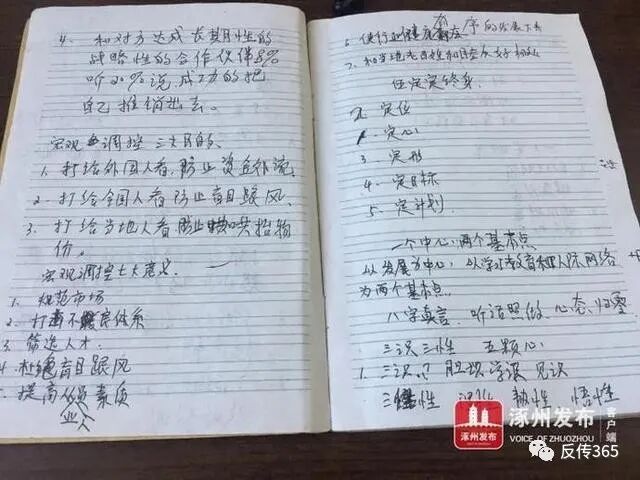 4. 和对方达成长期性的
战略性的合作伙伴8%
听20%说,成功的把
自己推销出去。
宏观调控三大目的、
1. 打给外国人看,防止资金外流,
2. 打给全国人看防止盲目跟风、
3. 打给当地人看防止哄抬物
价。
宏观调控七大意义.
1. 规范市场
2. 打击不良体质
3. 筛选人才.
4. 杜绝盲目跟风
提高从业人员素质
6. 使行业健康有序的发展下去
7. 和当地老百姓和民众好
五定定终身.
定位
定心
3. 定形
4. 定目标
5. 定计划.
一个中心,两个基本点
以发展为中心,以学习教育和人际网络
为两个基本点
八字真言,听话照做、心态、归零
三识三性 五颗心
1. 三识 胆识学识见识
三性 韧性 悟性
涿州发布
VOICE OF ZHUOZHOU
客户端
反传365